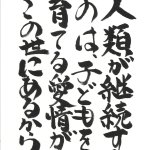 人類が継続す
のは子どもを
育てる愛情が
この世にあるから